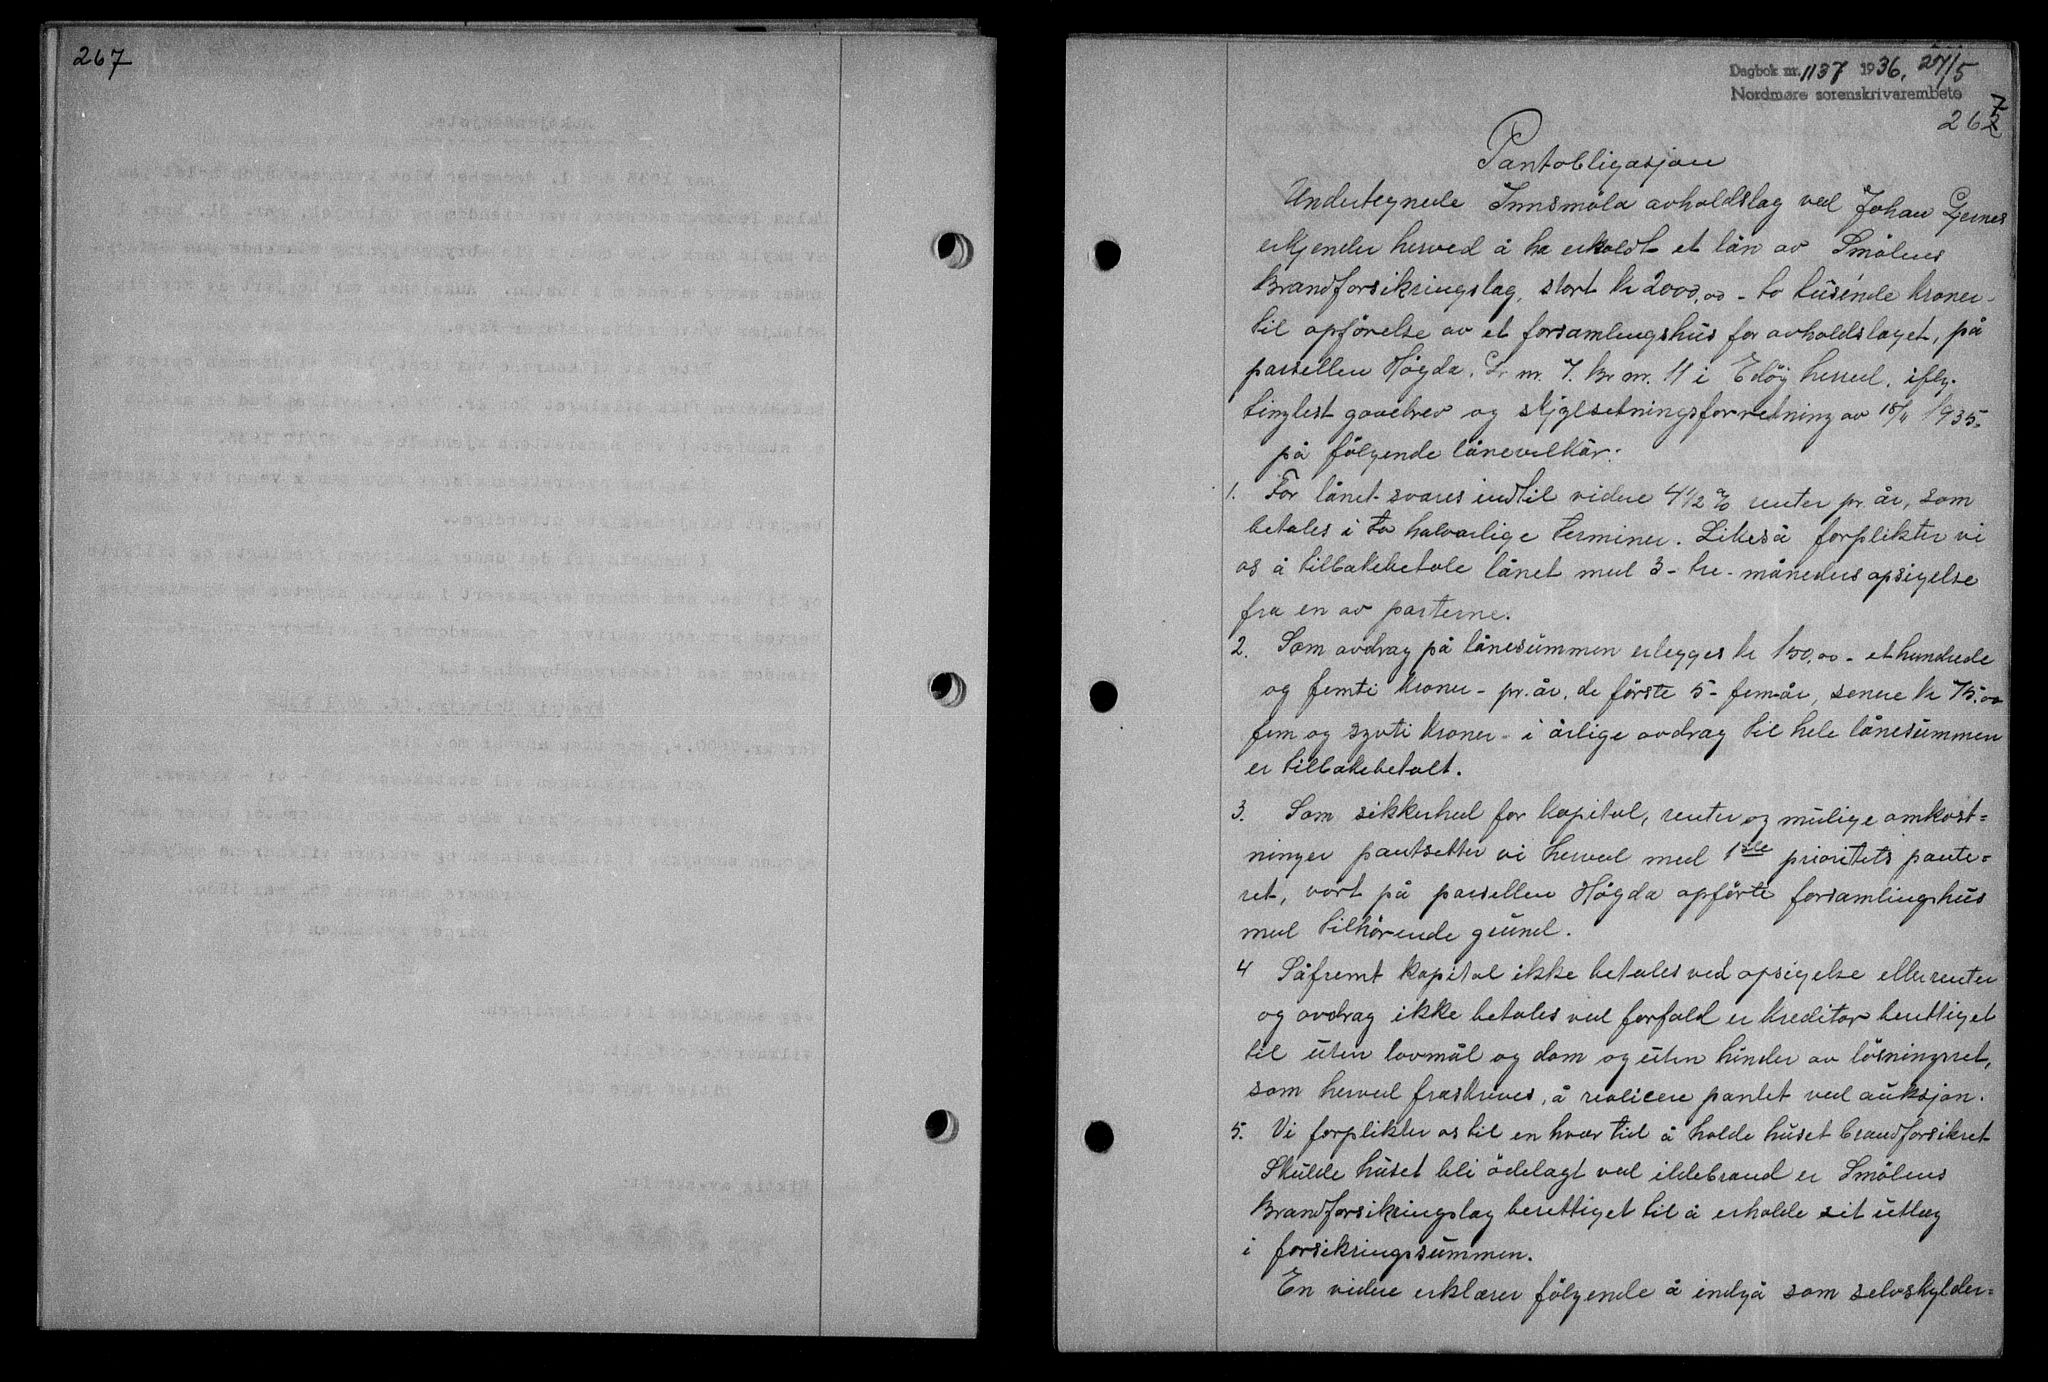 267
Dagbok nr. 1137 1936, 27/5
Nordmøre sorenskrivarembete
267
Pantobligasjon
Undertegnede Innsmöla avholdslag ved Johan Gjernes
erkjender herved å ha erholdt et lån av Smölens
Brandforsikringslag, stort kr 2000,00 - to tusende kroner -
til opförelse av et forsamlingshus for avholdslaget, på
parsellen Högda. Gr nr. 7. Br nr. 11 i Edöy herred, iflg.
tinglest gavebrev og skjylsetningsforretning av 18/11 1935.
på fölgende lånevilkår:
1. For lånet svares indtil videre 4 1/2 % renter pr. år, som
betales i to halvårlige terminer. Likeså forplikter vi
os å tilbakebetale lånet med 3 - tre - måneders opsigelse
fra en av parterne.
2. Som avdrag på lånesummen erlegges kr 150,00 - et hundrede
og femti kroner - pr. år, de förste 5 - fem år, senere kr 75,00
fem og sytti kroner - i årlige avdrag til hele lånesummen
er tilbakebetalt.
3. Som sikkerhed for kapital, renter og mulige omkost=
ninger pantsetter vi herved med 1ste prioritets pante=
ret, vort på parsellen Högda opförte forsamlingshus
med tilhörende grund.
4 Såfremt kapital ikke betales ved opsigelse eller renter
og avdrag ikke betales ved forfald er kreditor berettiget
til uten lovmål og dom og uten hinder av lösningsret,
som herved fraskrives, å realicere pantet ved auksjon.
5. Vi forplikter os til en hver tid å holde huset brandforsikret
Skulde huset bli ödelagt ved ildebrand er Smölens
Brandforsikringslag berettiget til å erholde sit utlæg
i forsikringssummen.
En videre erklærer fölgende å indgå som selvskylder=